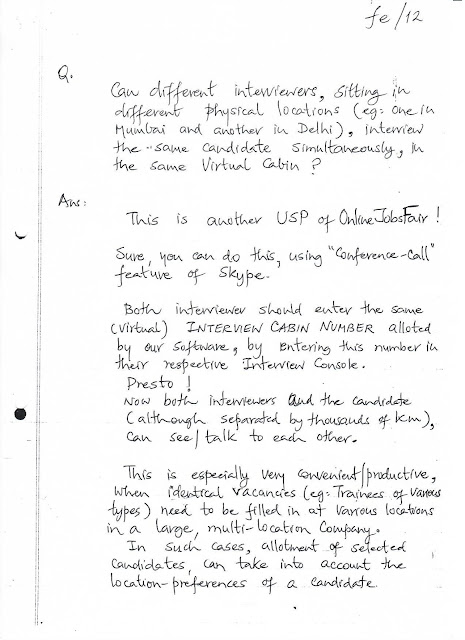 fe/12
Q.
Can different interviewers, sitting in
different physical locations (eg: one in
Mumbai and another in Delhi), interview
the same candidate simultaneously, in
the same Virtual Cabin ?
Ans:
This is another USP of OnlineJobsFair !
Sure, you can do this, using "Conference-Call"
feature of Skype.
Both interviewer should enter the same
(virtual) INTERVIEW CABIN NUMBER alloted
by our software, by entering this number in
their respective Interview Console.
Presto !
Now both interviewers and the candidate
(although separated by thousands of km),
can see/talk to each other.
This is especially very convenient/productive,
when identical vacancies (eg: Trainees of various
types) need to be filled in at various locations
in a large, multi-location company.
In such cases, allotment of selected
candidates, can take into account the
location-preferences of a candidate.